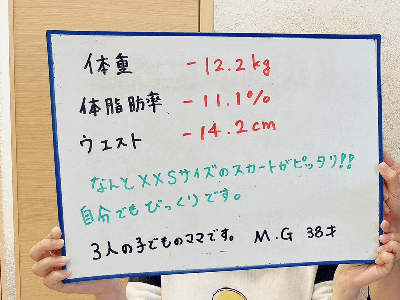 体重 -12.2kg
体脂肪率 -11.1%
ウエスト -14.2cm
なんとXXSサイズのスカートがピッタリ!!
自分でもびっくりです。
3人の子どものママです。 M.G 38才